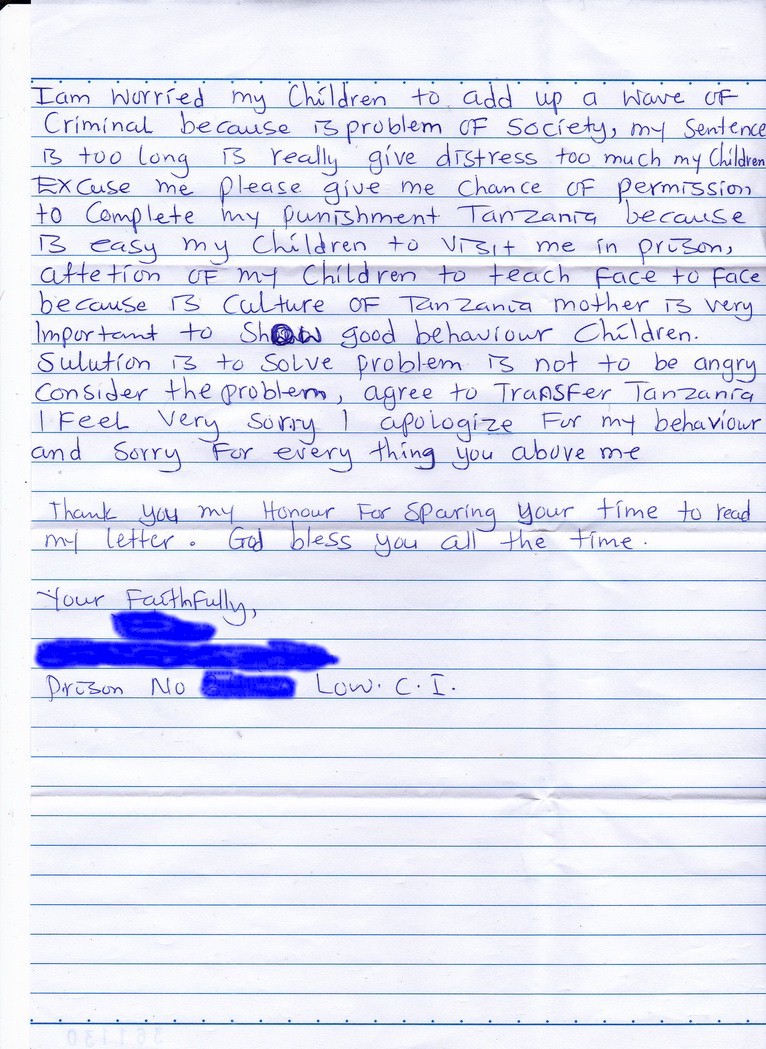 I am worried my Children to add up a wave of
Criminal because is problem of Society, my Sentence
is too long is really give distress too much my Children
Excuse me please give me chance of permission
to Complete my punishment Tanzania because
is easy my Children to visit me in prison,
attetion of my Children to teach face to face
because is Culture of Tanzania mother is very
Important to Show good behaviour Children.
Sulution is to Solve problem is not to be angry
Consider the problem, agree to Transfer Tanzania
I Feel Very Sorry I apologize For my behaviour
and Sorry For every thing you above me
Thank you my Honour For Sparing your time to read
my letter. God bless you all the time.
Your Faithfully,
Prison No Low. C. I.